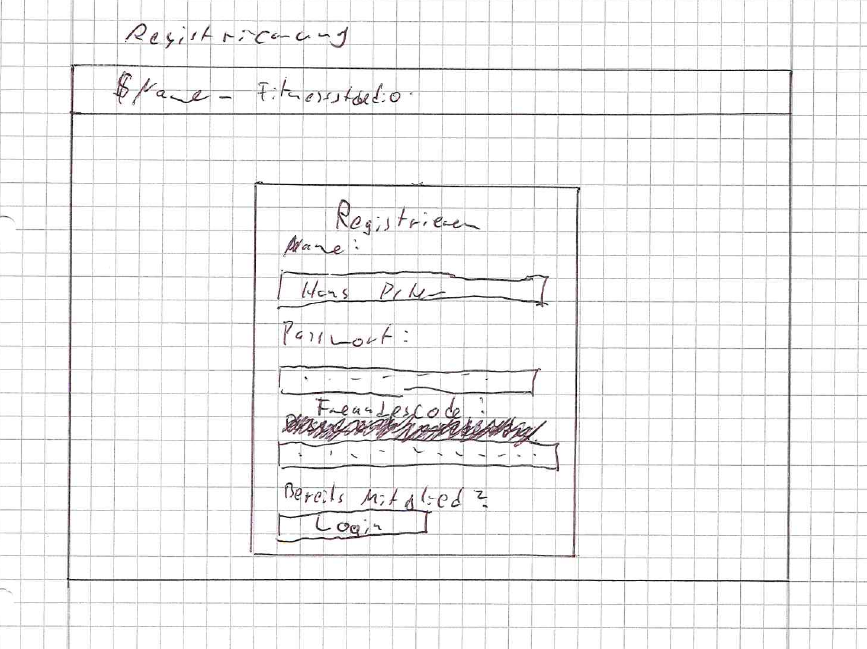 Registrierung
$Name - Fitnessstudio
Registrieren
Name:
Hans
Passwort:
Freundescode:
Bereits Mitglied?
Login